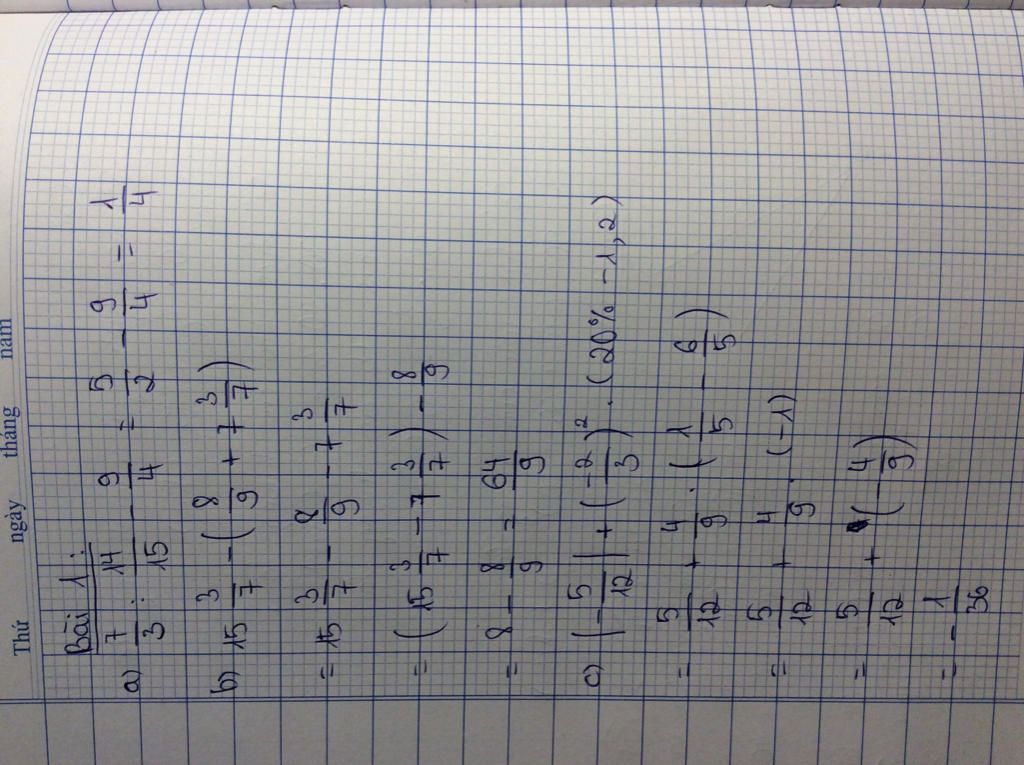 Thứ ngày tháng năm
Bài 1:
a) 7/3 : 14/15 - 9/4 = 5/2 - 9/4 = 1/4
b) 15 3/7 - (8/9 + 7 3/7)
= 15 3/7 - 8/9 - 7 3/7
= (15 3/7 - 7 3/7) - 8/9
= 8 - 8/9 = 64/9
c) |-5/12| + (-2/3)² . (20% - 1,2)
= 5/12 + 4/9 . (1/5 - 6/5)
= 5/12 + 4/9 . (-1)
= 5/12 + (-4/9)
= -1/36